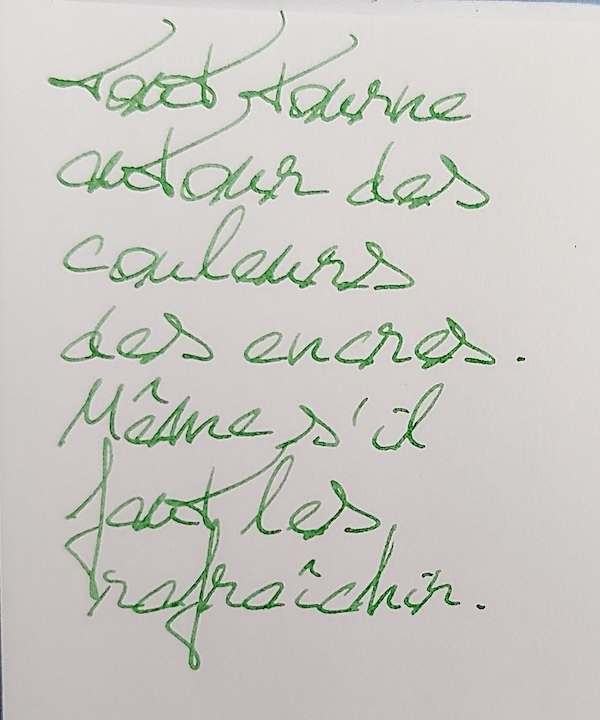 Tout tourne
autour des
couleurs
des encres.
Même s'il
faut les
rafraîchir.